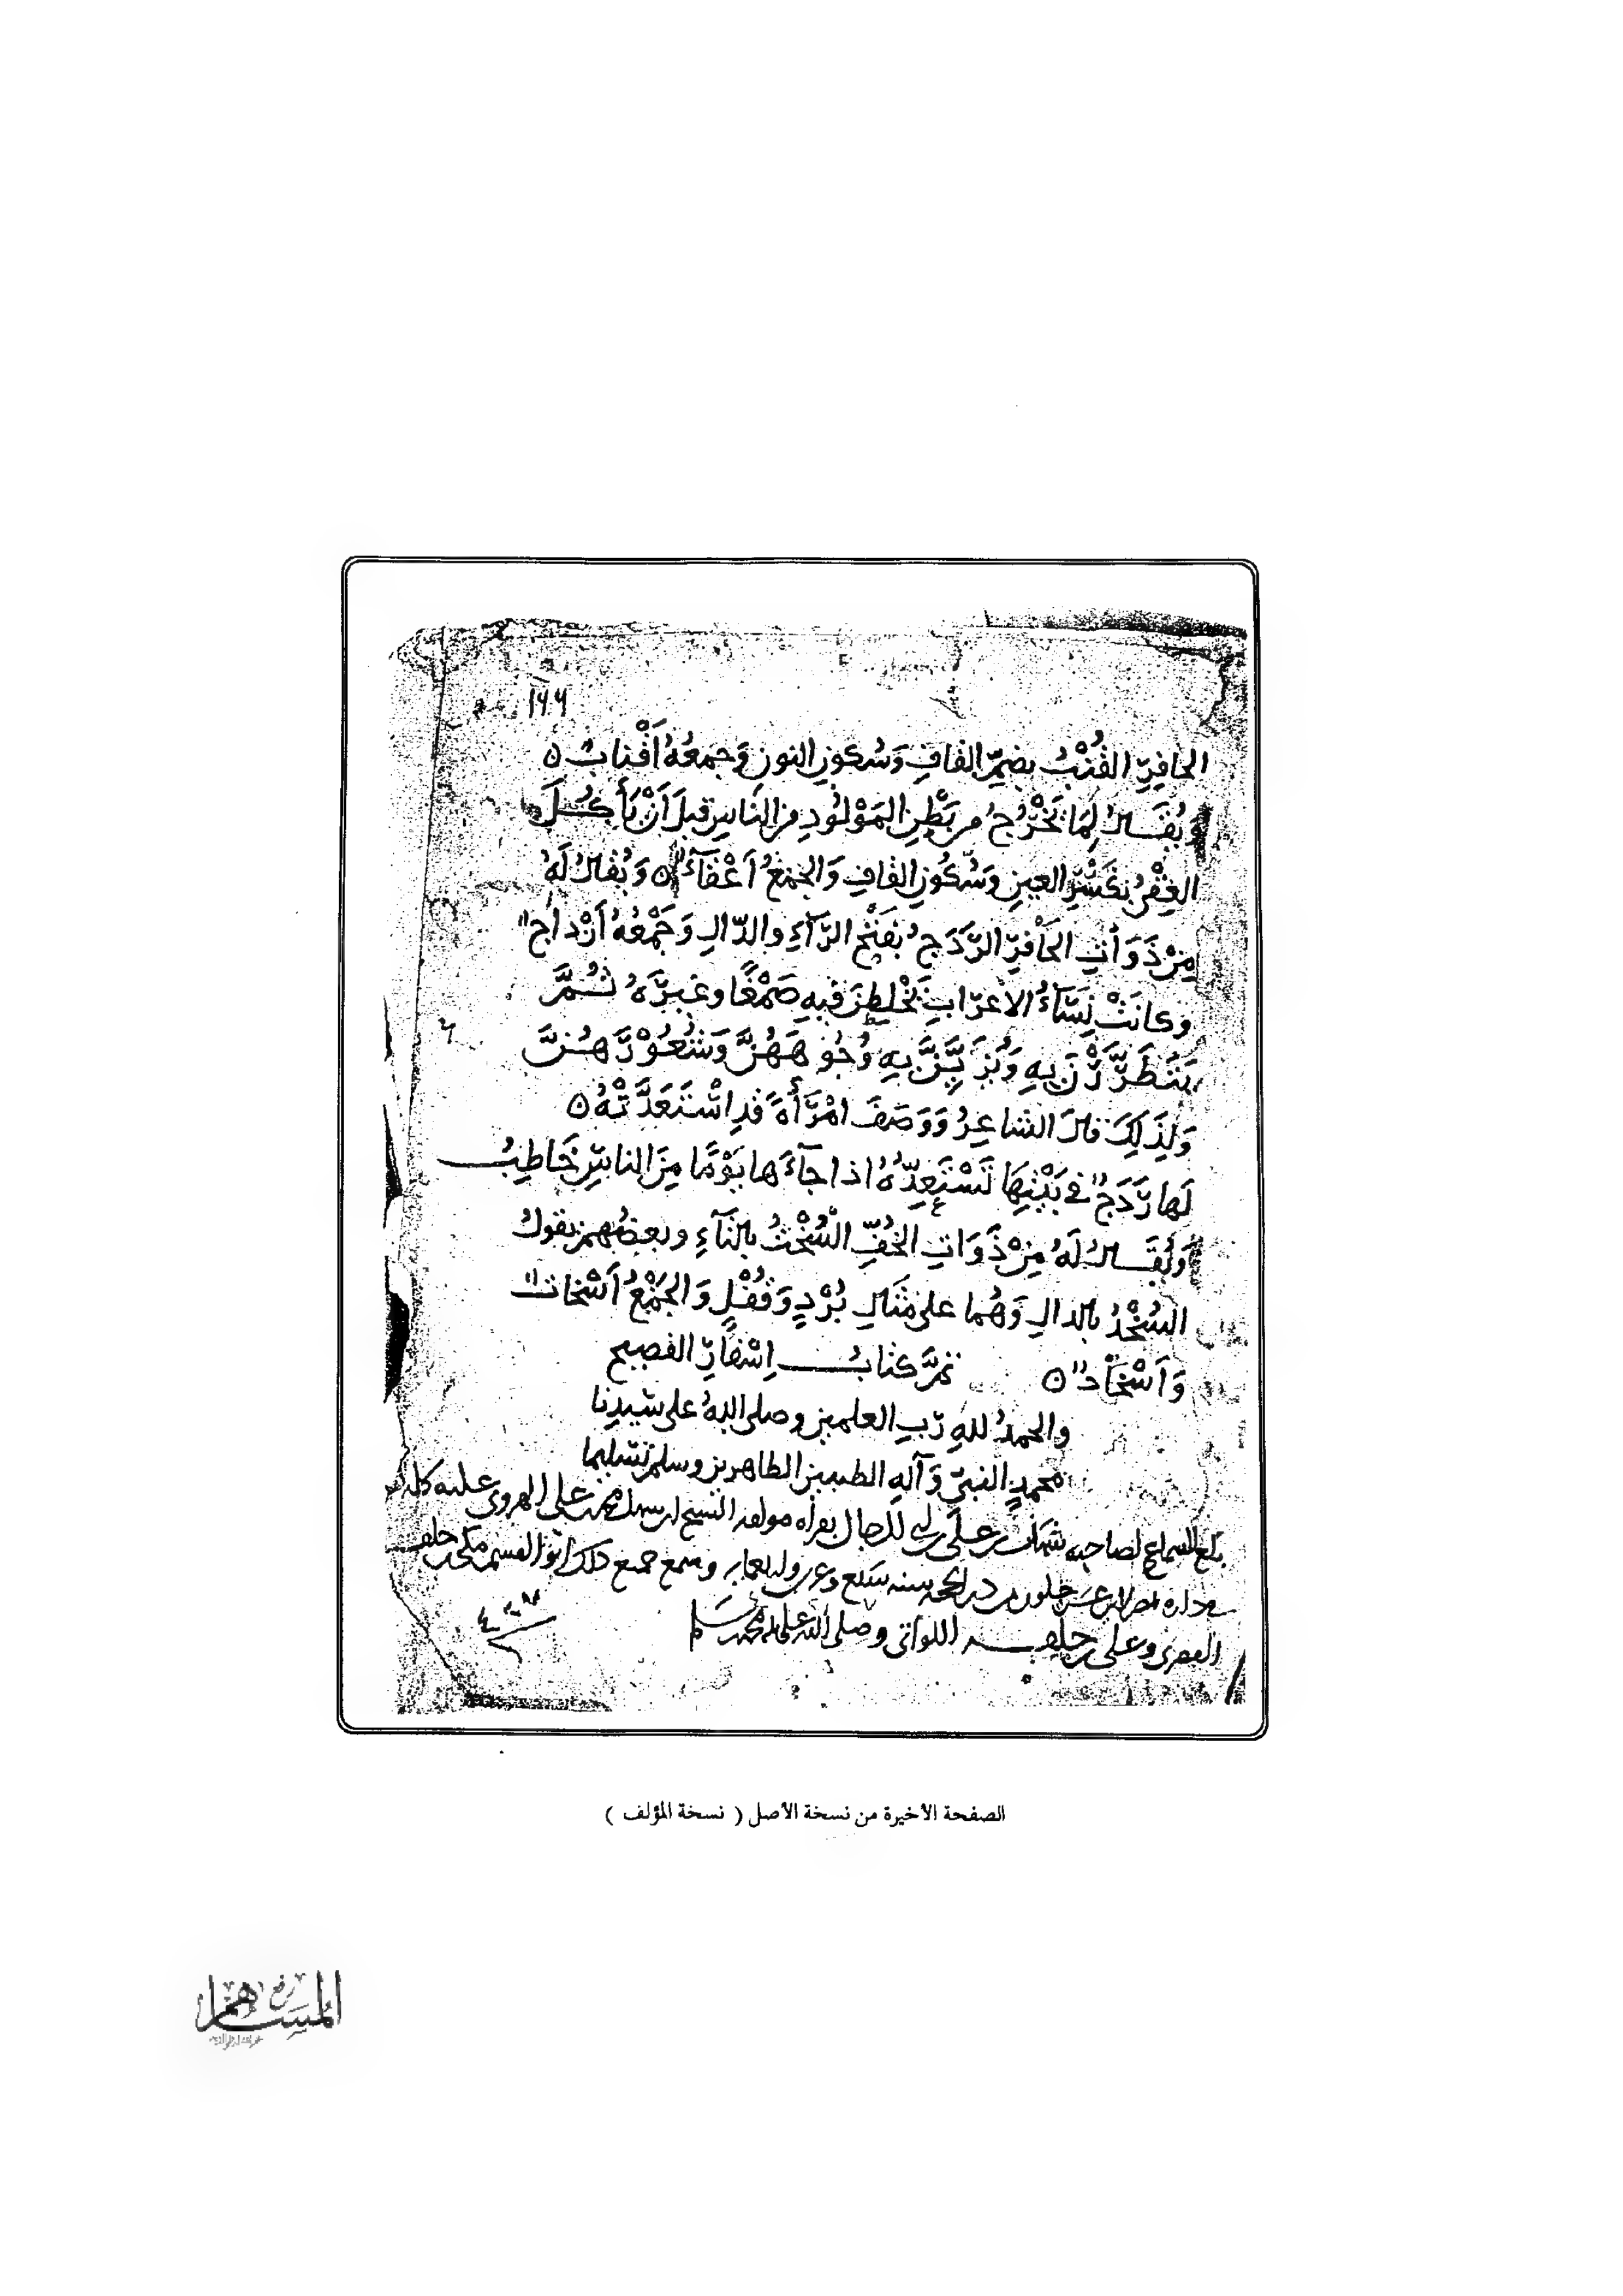 ١٩٩
الحافِرِ القُنْبُ بضمِّ القافِ وَسُكونِ النونِ وَجمعُهُ أَقْنابٌ ٥
وَيُقَـالُ لِمَا يَخْرُجُ مِن بَطْنِ المَوْلُودِ مِنَ النَّاسِ قبلَ أَنْ يَأْكُـلَ
العِقْىُ بكَسْرِ العينِ وَسُكُونِ القافِ وَالجمْعُ أَعْقَآءٌ ٥ وَيُقالُ لَهُ
مِنْ ذَوَاتِ الحَافرِ الرَّدَجُ بفَتْحِ الرَّآءِ والدّالِ وَجَمْعُهُ أَرْدَاجٌ
وَكانَتْ نِسَآءُ الأعرَابِ يَخْلِطْنَ فيهِ صَمْغًا وغيرَهُ ثـُمَّ
يَتَطَرَّرْنَ بِهِ وَيُزَيِّنَّ بِهِ وُجُوهَهُنَّ وَشُعُوْرَهـُنَّ
وَلِذَلِكَ قالَ الشاعِرُ وَوَصَفَ امْرَأَةً قدِ اسْتَعَدَّتْهُ ٥
لَها رَدَجٌ فى بَيْتِهَا تَسْتَعِدُّهُ اذا جَآءَها يَوْمًا مِنَ الناسِ خَاطِبُ
وَيُقَـالُ لَهُ مِنْ ذَوَاتِ الخُفِّ السُّخْتُ بالتَّآءِ وبعضُهم يقولُ
السُّخْدُ بالدالِ وَهُما على مثَالِ بُرْدٍ وَقُفْلٍ وَالجَمْعُ أَسْخَاتٌ
وَأَسْخَادٌ ٥ تمَّ كتابُ إِسْفارِ الفصيح
والحمدُ للهِ رَبِّ العلمين وصلى اللهُ على سَيِّدِنا
محمدٍ النبىِّ وَآلِهِ الطيبين الطاهرين وسلم تسليما
بلغ السماع لصاحبه على بن بقرأة مولفه الشيخ ابى سهل محمد بن على الهروى عليه كله
فى داره بمصر سنه سبع وعشرين وسمع جميع ذلك ابو القسم مكى بن خلف
البصرى وعلى بن خلف اللواتى وصلى الله على محمد وسلم
الصفحة الأخيرة من نسخة الأصل ( نسخة المؤلف )